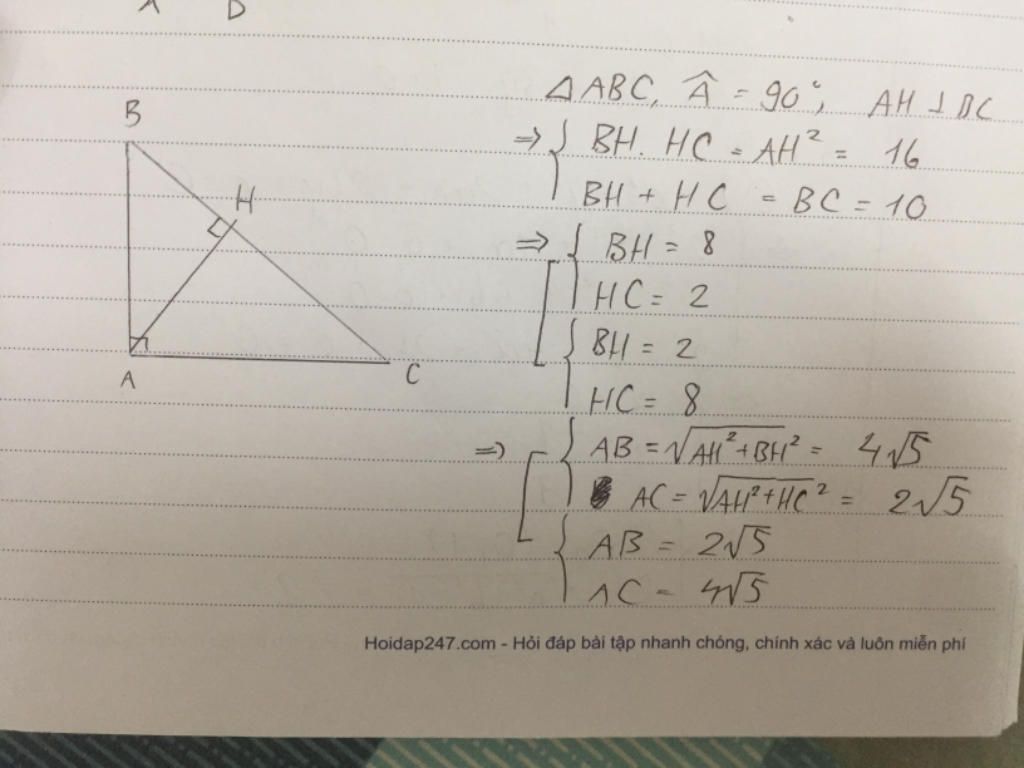 A D
B
H
A
C
△ABC, Â = 90°, AH ⊥ BC
=> { BH. HC = AH² = 16
BH + HC = BC = 10
=> [ { BH = 8
HC = 2
{ BH = 2
HC = 8
=> [ { AB = √AH²+BH² = 4√5
AC = √AH²+HC² = 2√5
{ AB = 2√5
AC = 4√5
Hoidap247.com - Hỏi đáp bài tập nhanh chóng, chính xác và luôn miễn phí